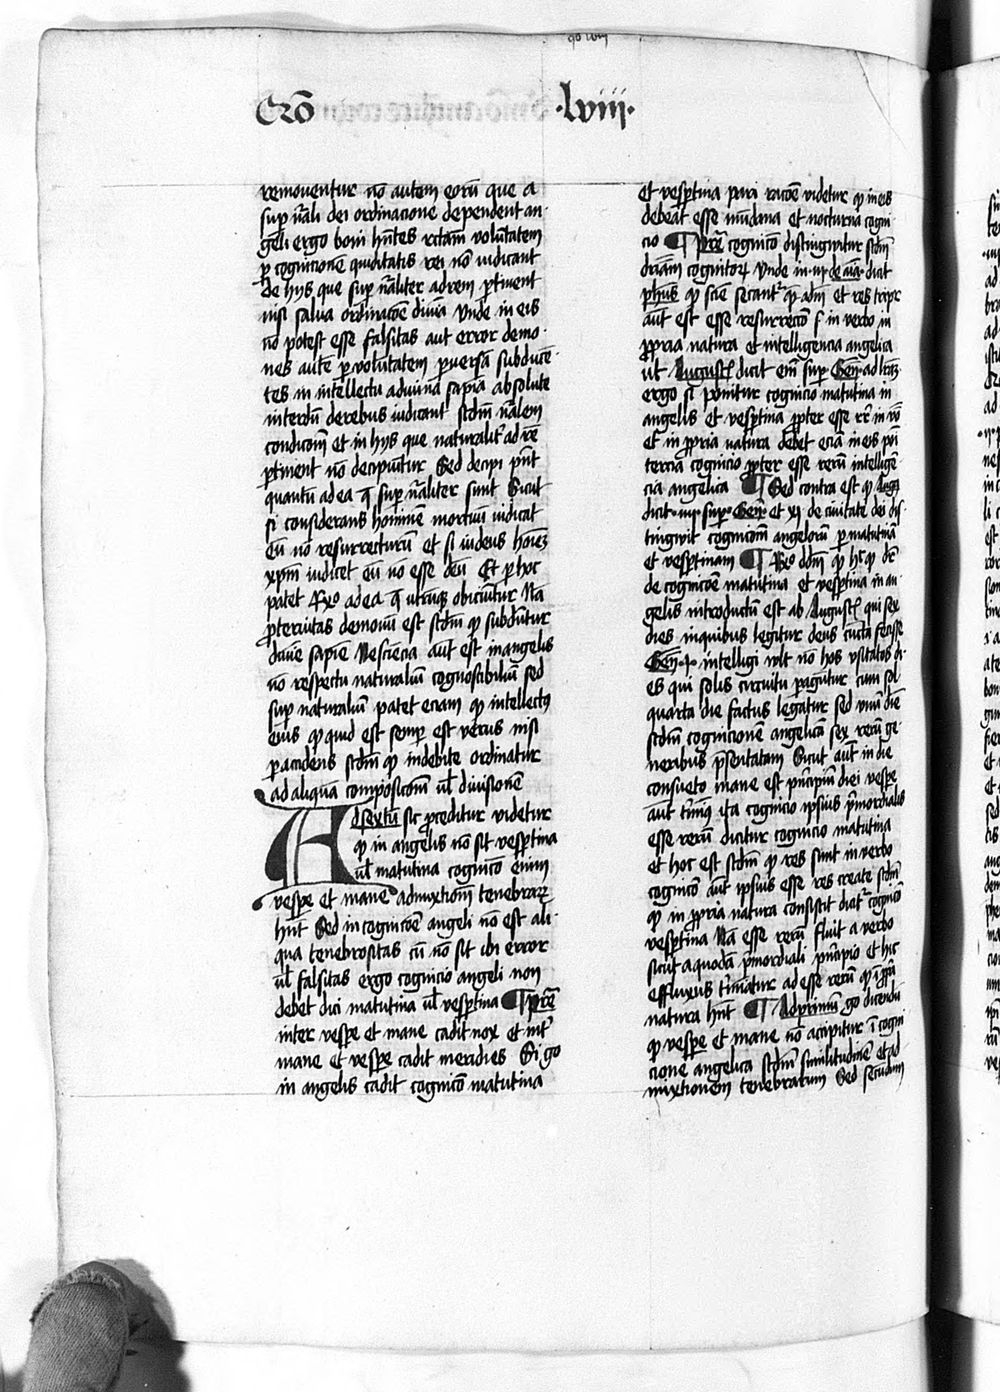 qo lviij
Cꝛō ·lviij·
remouentur nō autem eorū que a
sup nāli dei ordinacione dependent an
geli ergo boni hn̄tes rctam volūtatem
ꝑ cognicionē quiditatis rei nō iudicant
de hijs que suꝑ nāliter ad rem ꝑtinent
nisi salua ordinacōe diuīa Vnde in eis
nō potest esse falsitas aut error demo
nes autē ꝑ volūtatem ꝑuersā subducē
tes in intellectu a diuina sapiā absolute
interdū de rebus iudicant scdm nālem
condicōm et in hijs que naturalit᷑ ad rē
ꝑtinent nō decipiūtur Sed decipi pn̄t
quantū ad ea q̄ suꝑ nāliter sunt Sicut
si considerans hominē mortuū iudicat
eū nō resurrecturū et si uidens hoīeʒ
xpm iudicet eū nō esse deū Et ꝑ hoc
patet Rꝰo ad ea q̄ utrūqꝫ obiciūtur Nā
ꝓteruitas demonū est scdm ꝙ subdūtur
diuīe sapiē Nesciēcia aūt est in angelis
nō respectu naturaliū cognoscibiliū sed
suꝑ naturaliū patet eciam ꝙ intellectꝰ
eius ꝙ quid est semꝑ est verus nisi
ꝑ accidens scdm ꝙ indebite ordinatur
ad aliquā composicōm ul̄ diuisionē
Ad sextū sic ꝓceditur videtur
ꝙ in angelis nō sit vesꝑtina
ul̄ matutina cognicō enim
vespe et mane admixtiōm tenebraꝝ
hn̄t Sed in cognicōe angeli nō est ali
qua tenebrositas cū nō sit ibi error
ul̄ falsitas ergo cognicio angeli non
debet dici matutina ul̄ vesꝑtina ¶ Pret̄
inter vespe et mane cadit nox et int᷑
mane et vespe cadit meridies Si go
in angelis cadit cognicō matutina
et vesꝑtina pari racōe videtur ꝙ in eis
debeat esse meridiana et nocturna cogni
cio ¶ Pret̄ cognicō distinguitur scdm
driam cognitoꝝ Vnde in ·iijº· de aīa dicit
phūs ꝙ sciē secant᷑ qꝫadm et res tripꝰ
aūt est esse rerum s in verbo in
ꝓpria natura et intelligencia angelica
ut Augustꝰ dicit em̄ suꝑ Gen̄ ad lrāʒ
ergo si ponitur cognicio matutina in
angelis et vesꝑtina ꝓpter esse rer̄ in vō
et in ꝓpria natura debet eciā in eis pōi
tercia cognicio ꝓpter esse rerū intelligē
cia angelica ¶ Sed contra est ꝙ Augꝰ
dicit ·iiij· suꝑ Gen̄ et xj de ciuitate dei dis
tingwit cognicōm angeloꝝ ꝑ matutinā
et vesꝑtinam ¶ Rꝰo ddm̄ ꝙ hc ꝙ dr̄
de cognicōe matutina et vesꝑtina in an
gelis introductū est ab Augustꝰ qui sex
dies in quibus legitur deus cūcta fecisse
Gen̄ ·j· intelligi wlt nō hos vsitatos di
es qui solis circuitu ꝑaguntur cum sol
quarta die factus legatur sed vnū diē
scdm cognicionē angelicā sex rerū ge
neribus p̄sentatam Sicut aūt in die
consueto mane est p̄ncipiū diei vespe
aūt t᷑mīꝰ ita cognicio ipsius p̄mordialis
esse rerū dicitur cognicio matutina
et hoc est scdm ꝙ res sunt in verbo
cognicō aūt ipsius esse res create scdm
ꝙ in ꝓpria natura consistit dicit᷑ cognicō
vesꝑtina Nā esse rerū fluit a verbo
sicut a quodā p̄mordiali p̄ncipio et hic
effluxus t᷑minatur ad esse rerū ꝙ ī ꝓpa
natura hn̄t ¶ Ad primū go dicendū
ꝙ vespe et mane nō accipitur ī cogni
cione angelica scdm similitudinē et ad
mixtionem tenebrarum Sed secundum